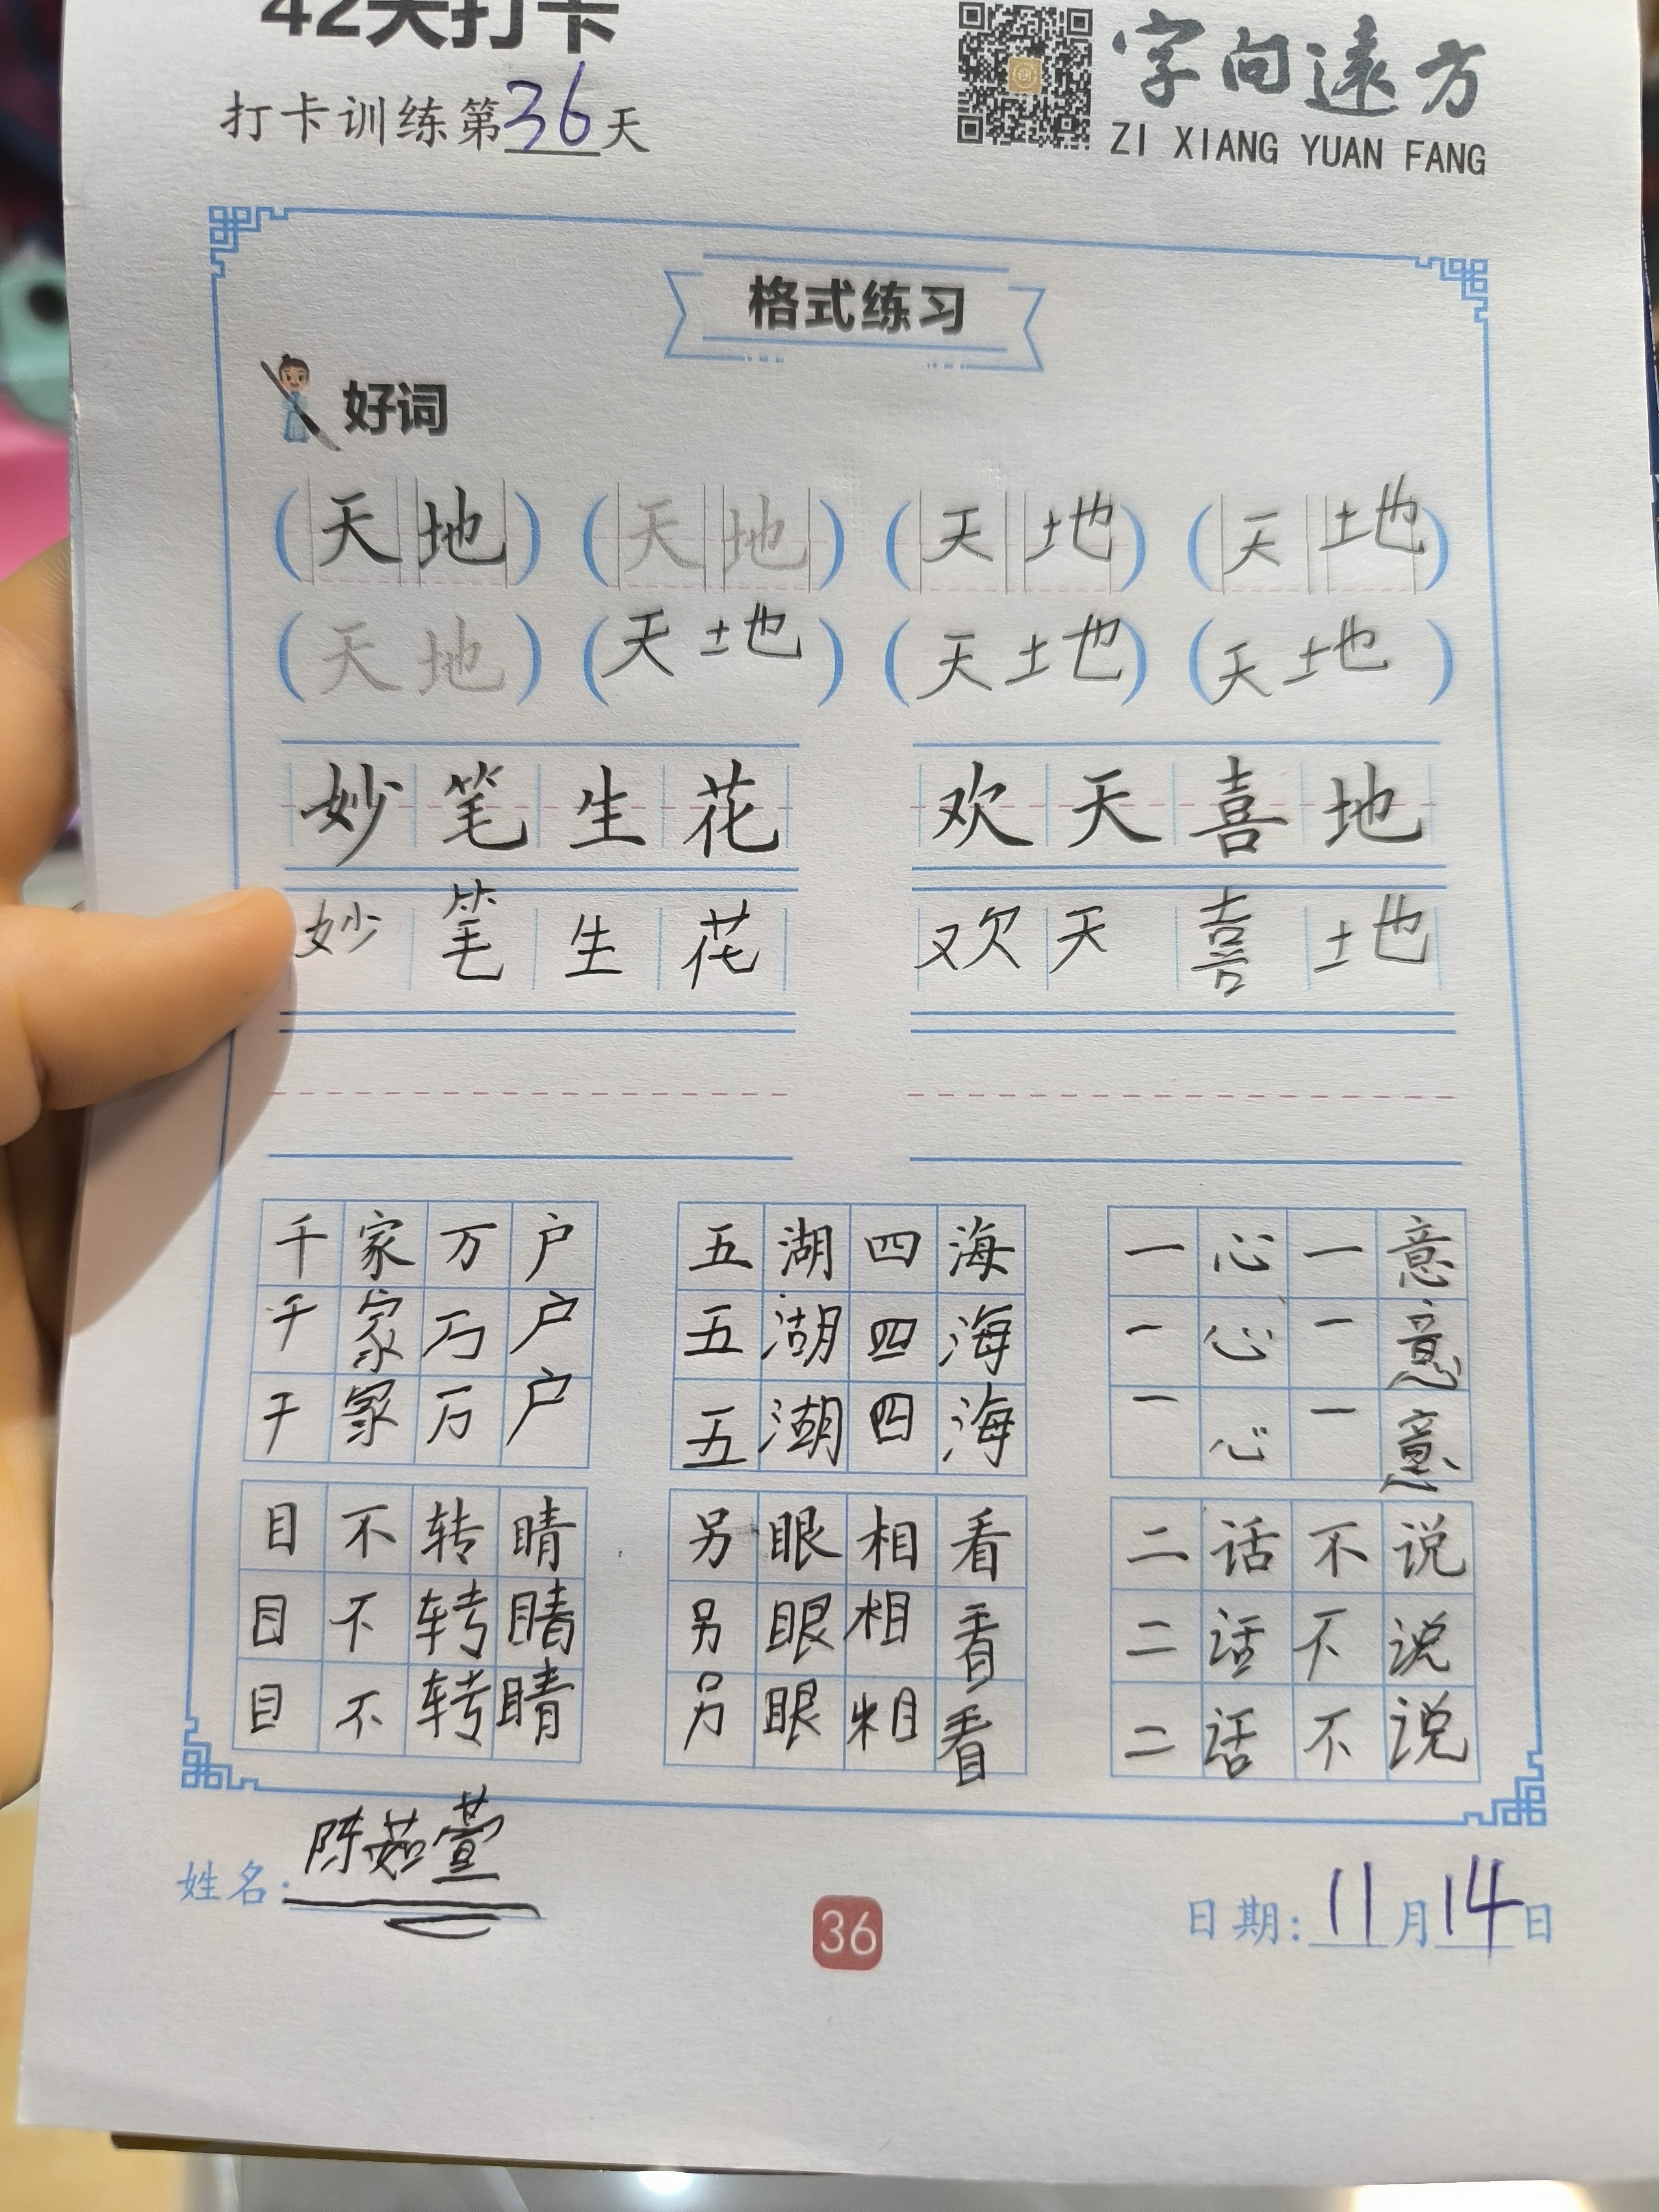 42天打卡
打卡训练第36天
字向远方
ZI XIANG YUAN FANG
格式练习
好词
(天地) (天地) (天地) (天地)
(天地) (天地) (天地) (天地)
妙笔生花 欢天喜地
妙笔生花 欢天喜地
千家万户 五湖四海 一心一意
千家万户 五湖四海 一心一意
千家万户 五湖四海 一心一意
目不转睛 另眼相看 二话不说
目不转睛 另眼相看 二话不说
目不转睛 另眼相看 二话不说
姓名:陈茹萱
36
日期:11月14日